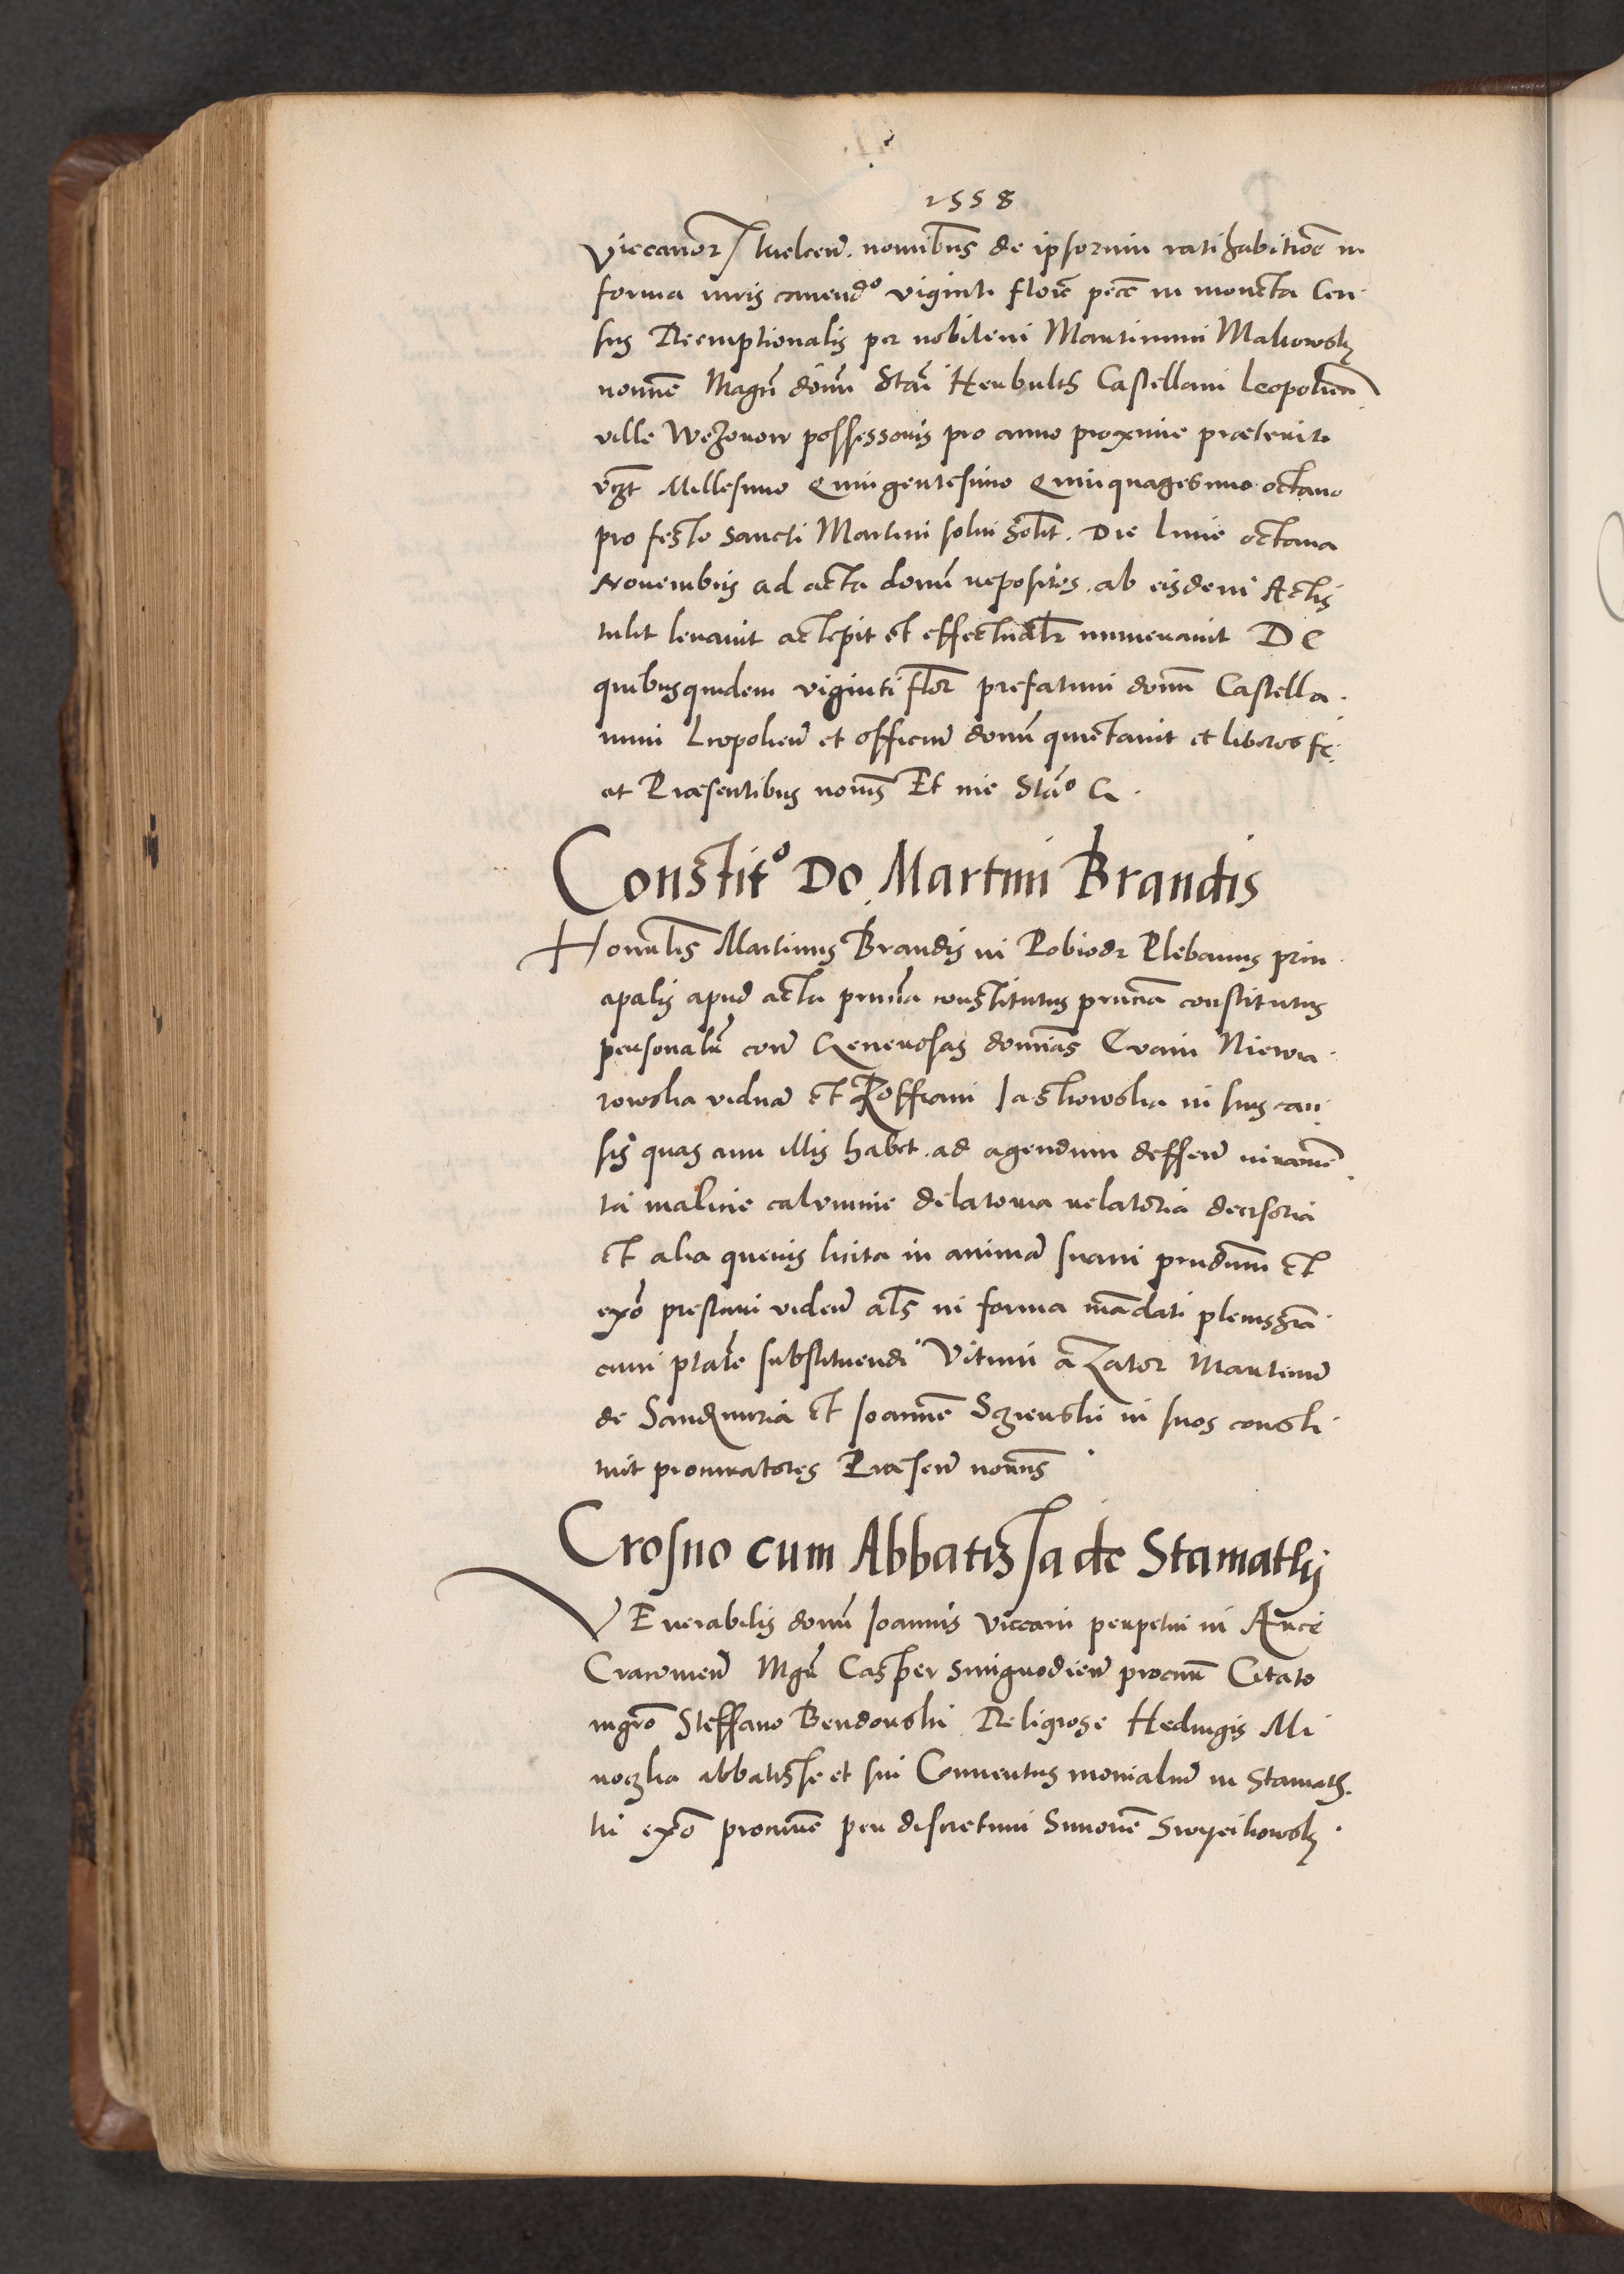 1558
Viccarior Tuelcen̄. nomībus de ipsorum ratihabitiōe in
forma iuris cauendº viginti floreñ pecē in moneta Cen
sus Reemptionalis per nobilem Martinum Makowskj
nomine Magci dōni Stāi Herbulth Castellani Leopolien̄
ville Wezerow possessoris pro anno proxime preterito
vcȝt Millesimo Quingentesimo Quinquagesimo octauo
pro festo sancti Martini solui solit. Die lune octaua
Nouembris ad acta domī repositos. ab eisdem Actis
tulit leuauit accepit et effectualr̄ numerauit De
quibusquidem viginti flor̄ prefatum donū Castella
num Leopolien̄ et officiū donū quietauit et liberos fe
at Præsentibus nominis Et me Stāº G.
Constitº Do. Martini Brandis
Honorabilis Martinus Brandis in Pobiedr Plebanus prin
cipalis apud acta pr̄nia constitutus pr̄ncia constitutus
personalr̄ con̄ Generosas dominas Evam Niewia
rowska viduā et Zoffiam Jaskowska in suis cau
sis quas cum illis habet. ad agendum deffen̄ iuramē
ta malicie calumnie delatoria relatoria decisoria
et alia quevis licita in animā suam prudūm et
exº prestari viden̄ als̄ in forma mādati plenissīa
cum ptāte substituendi Vitum a Zator Martinū
de Sandomiria et Joannē Sczienski in suos consti
tuit procuratores Præsen̄ nomīs
Crosno cum Abbatissa de Staniathij
VEnerabilis donū Joannis viccarii perpetui in Arce
Cracouien̄ Mgr̄ Casper Sinignodien̄ procur̄ Citato
mgrō Steffano Bendonski Religiose Hedvigis Mi
noczka abbatisse et sui Conuentus monialiū in Staniath
ki exº procurē per discretum Simonē Swyeikowskj